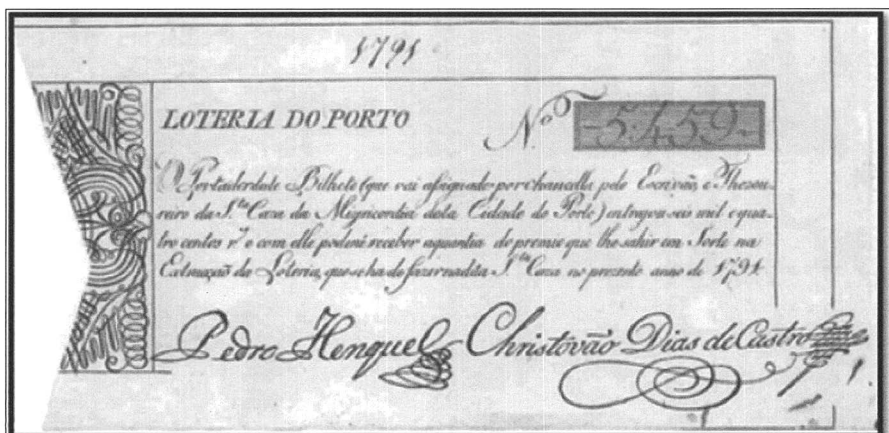 1791
LOTERIA DO PORTO
N.º -5.459-
O Portador deste Bilhete (que vai assignado por chancella pelo Escrivão, e Thesou-
reiro da S.ta Caza da Mizericordia desta Cidade do Porto) entregou seis mil e qua-
tro centos r.s e com elle poderá receber aquantia do premio que lhe sahir em Sorte na
Extracção da Loteria, que se ha de fazer na dita S.ta Caza no prezente anno de 1791
Pedro Henquel Christovão Dias de Castro